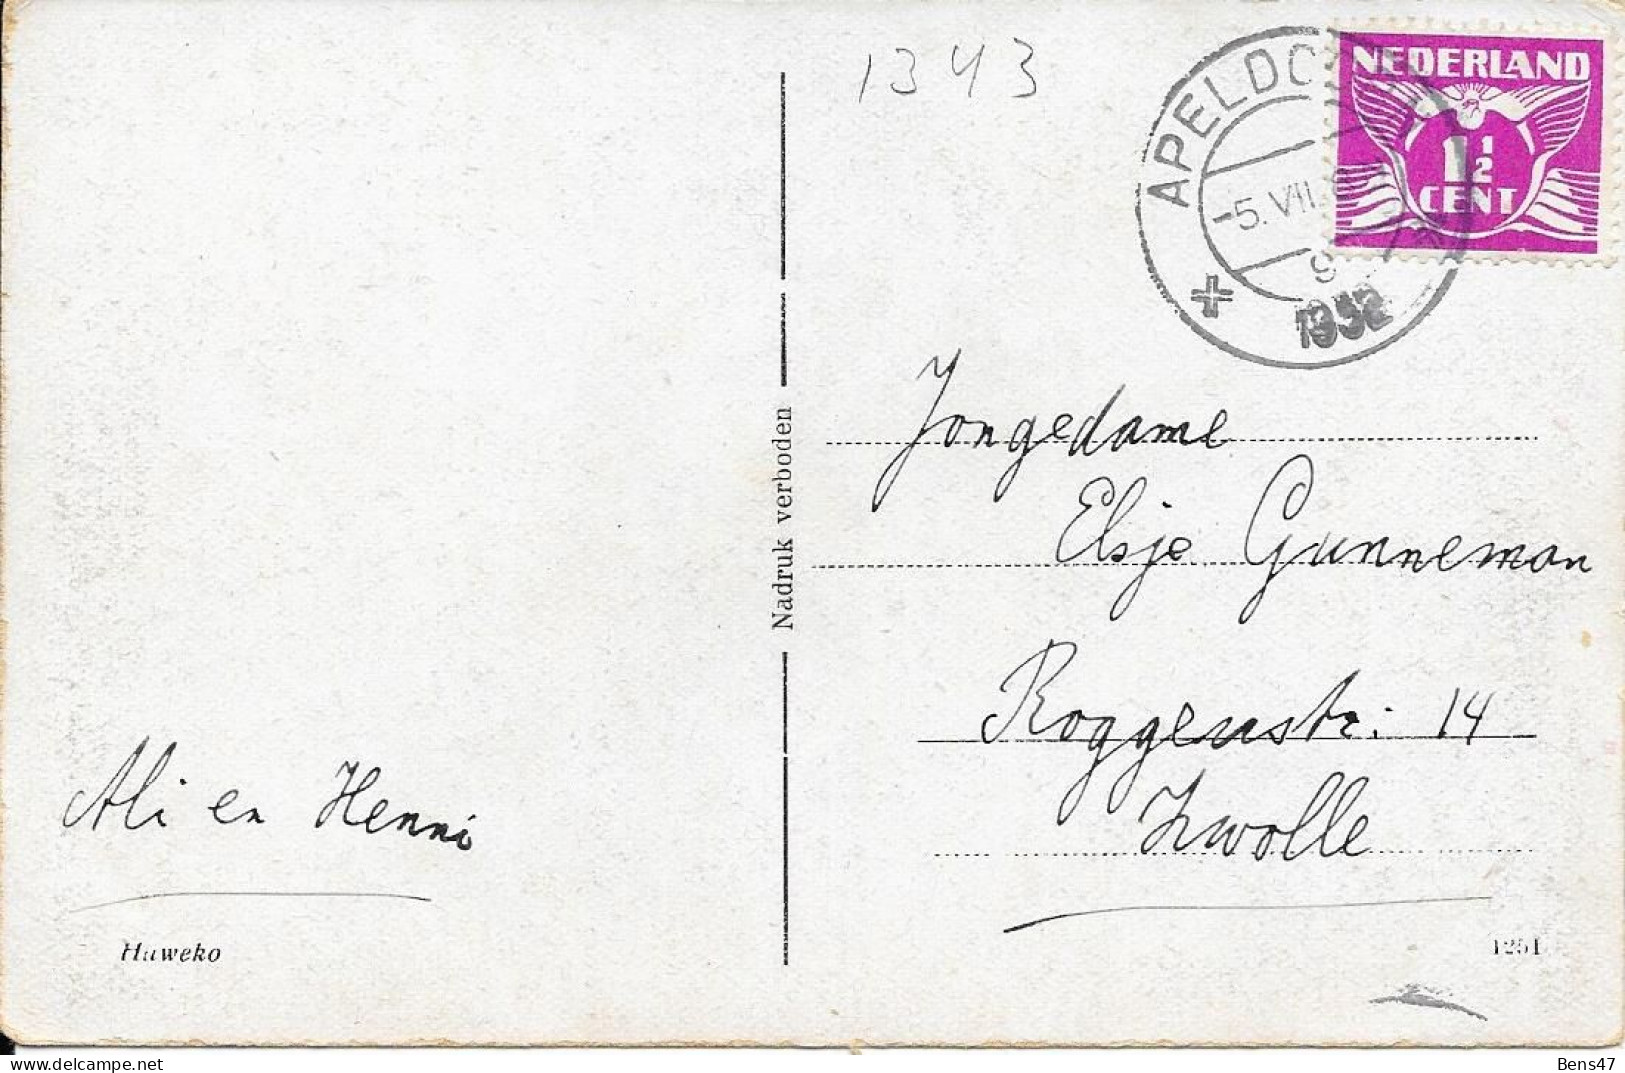 1343
APELDO
-5.VII.
1932
NEDERLAND
1½
CENT
Nadruk verboden
Jongedame
Elsje Gunneman
Roggenstr. 14
Zwolle
Ali en Henni
Huweko
1251
Bens47